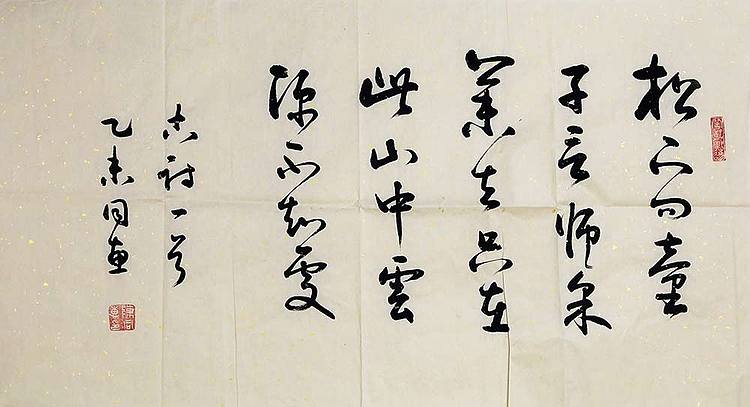 松下问童
子言师采
药去只在
此山中雲
深不知處
古诗一首
乙未同惠